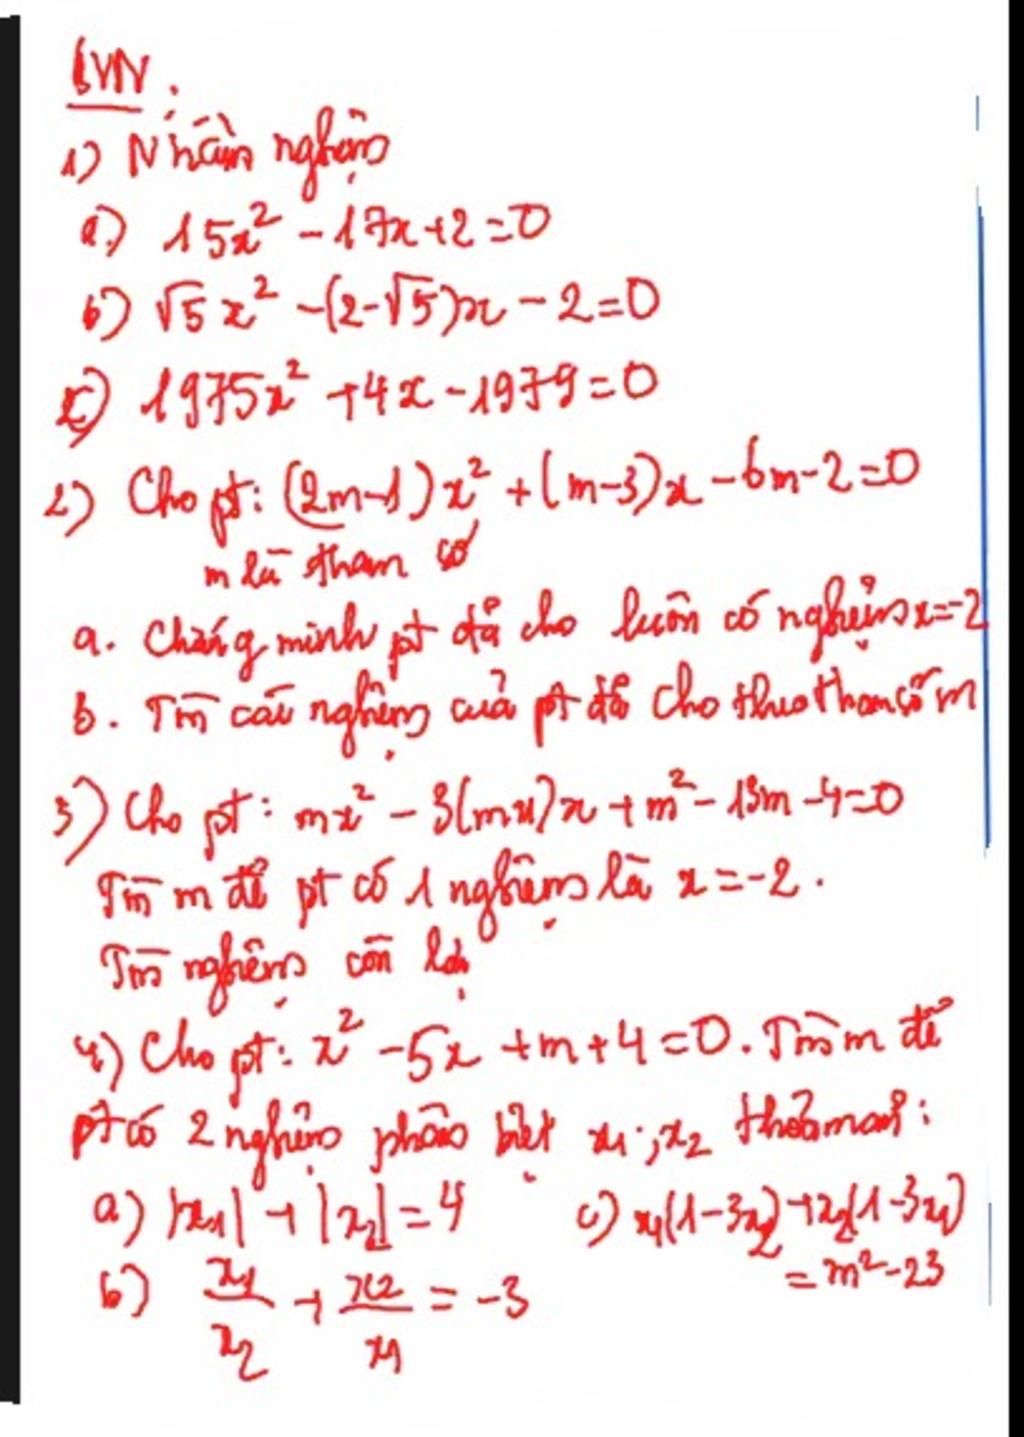 BVN.
1) Nhẩm nghiệm
a) 15x² - 17x + 2 = 0
b) √5 x² - (2-√5)x - 2 = 0
c) 1975x² + 4x - 1979 = 0
2) Cho pt: (2m-1)x² + (m-3)x - 6m - 2 = 0
m là tham số
a. Chứng minh pt đã cho luôn có nghiệm x=-2
b. Tìm các nghiệm của pt đã cho theo tham số m
3) Cho pt: mx² - 3(m+1)x + m² - 13m - 4 = 0
Tìm m để pt có 1 nghiệm là x = -2.
Tìm nghiệm còn lại
4) Cho pt: x² - 5x + m + 4 = 0. Tìm m để
pt có 2 nghiệm phân biệt x₁; x₂ thoả mãn:
a) |x₁| + |x₂| = 4 c) x₁(1-3x₂) + x₂(1-3x₁)
= m² - 23
b) x₁/x₂ + x₂/x₁ = -3